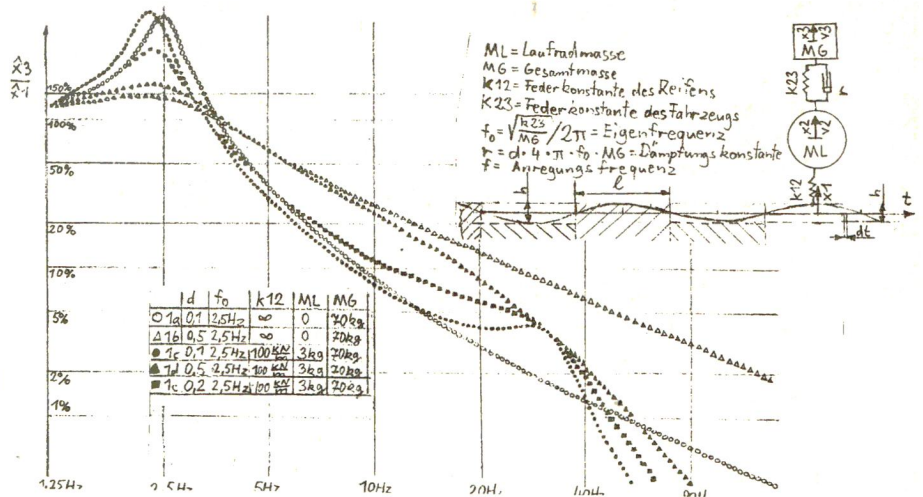 x̂3
x̂1
150%
100%
50%
20%
10%
5%
2%
1%
1.25Hz
2,5Hz
5Hz
10Hz
20Hz
40Hz
80Hz
ML = Laufradmasse
MG = Gesamtmasse
K12 = Federkonstante des Reifens
K23 = Federkonstante des Fahrzeugs
f₀ = √(k23/MG) / 2π = Eigenfrequenz
r = d · 4 · π · f₀ · MG = Dämpfungskonstante
f = Anregungsfrequenz
x3
v3
MG
K23
r
x2
v2
ML
K12
x1
h
l
h
t
dt
d f₀ k12 ML MG
○ 1a 0,1 2,5Hz ∞ 0 70kg
△ 1b 0,5 2,5Hz ∞ 0 70kg
● 1c 0,1 2,5Hz 100 KN/m 3kg 70kg
▲ 1d 0,5 2,5Hz 100 KN/m 3kg 70kg
■ 1c 0,2 2,5Hz 100 KN/m 3kg 70kg